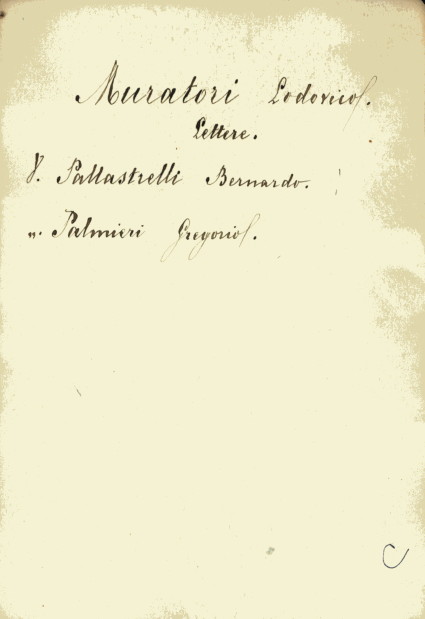 Muratori Lodovico.
Lettere.
V. Pallastrelli Bernardo.
". Palmieri Gregorio.
C